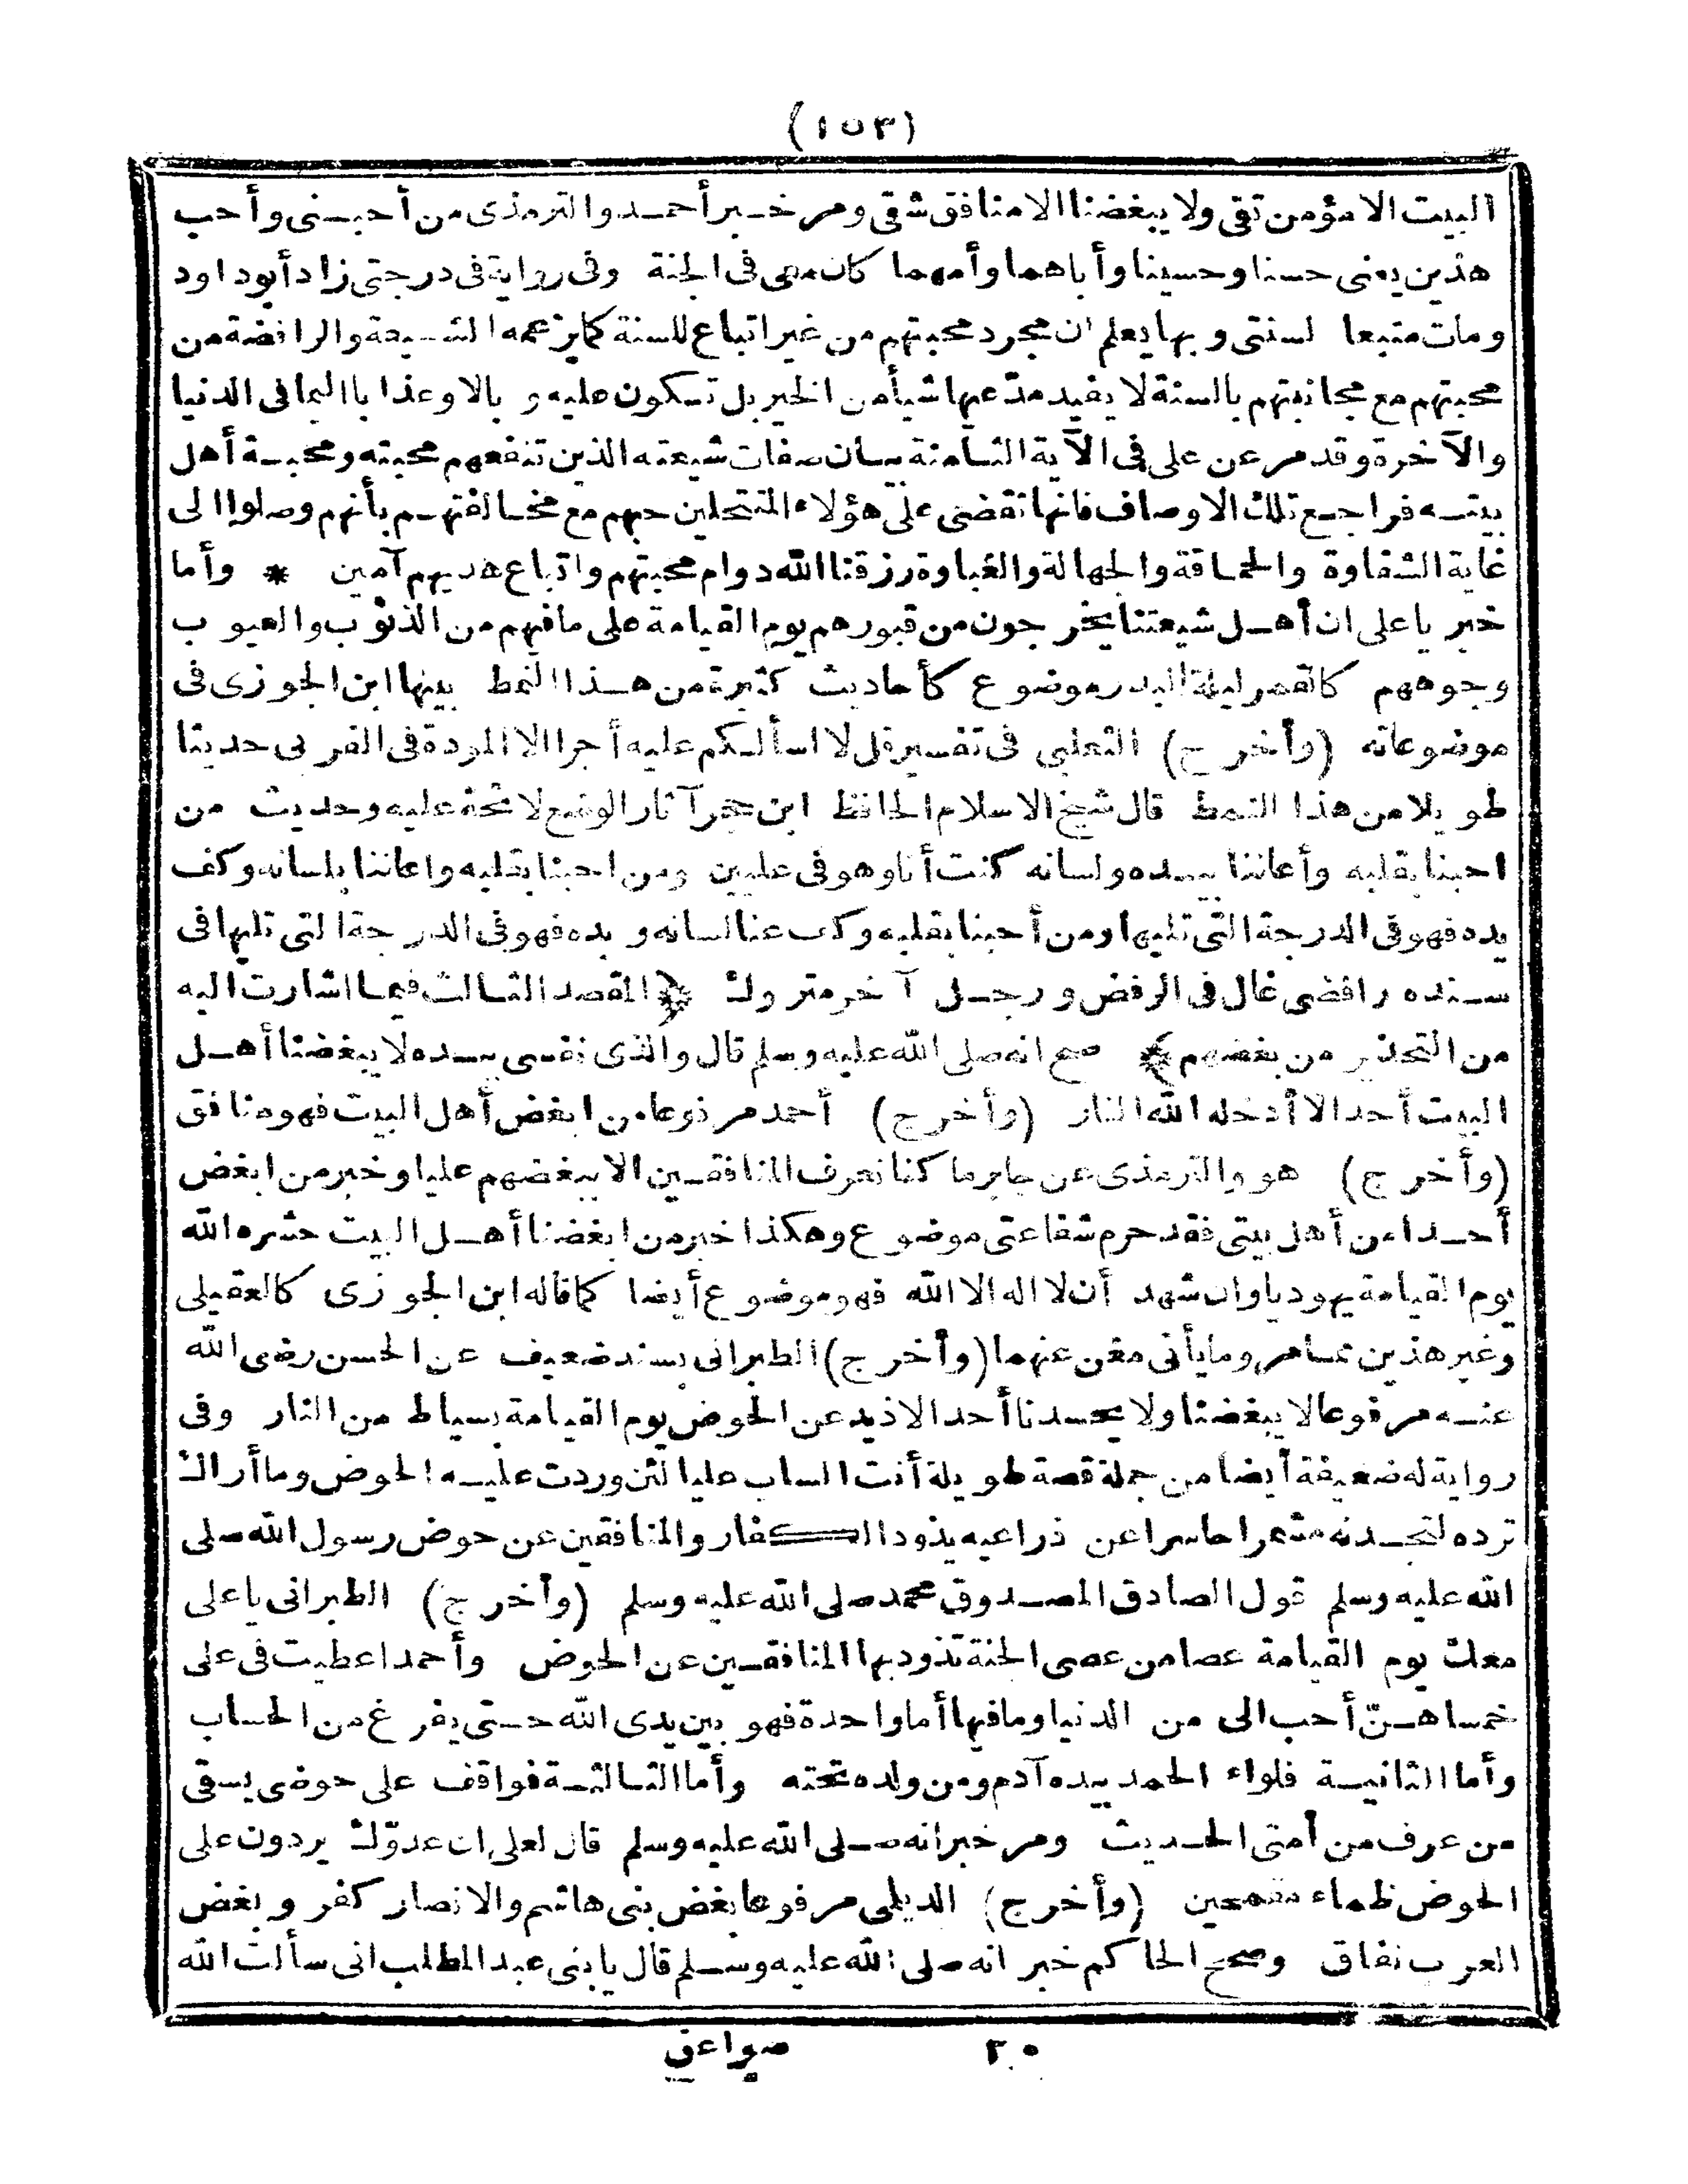 (١٥٣)
البيت الا مؤمن تقى ولا يبغضنا الا منافق شقى ومر خبر أحمد والترمذى من أحبنى وأحب
هذين يعنى حسنا وحسينا وأباهما وأمهما كان معى فى الجنة وفى رواية فى درجتى زاد أبو داود
ومات متبعا لسنتى وبها يعلم ان مجرد محبتهم من غير اتباع للسنة كما يزعمه الشيعة والرافضة من
محبتهم مع مجانبتهم بالسنة لا يفيد مدّعيها شيأ من الخير بل تكون عليه وبالا وعذابا اليما فى الدنيا
والآخرة وقد مر عن على فى الآية الثامنة بيان صفات شيعته الذين تنفعهم محبته ومحبة أهل
بيته فراجع تلك الاوصاف فانها تقضى على هؤلاء المنتحلين حبهم مع مخالفتهم بأنهم وصلوا الى
غاية الشقاوة والحماقة والجهالة والغباوة رزقنا الله دوام محبتهم واتباع هديهم آمين * وأما
خبر يا على ان أهل شيعتنا يخرجون من قبورهم يوم القيامة على ما فيهم من الذنوب والعيوب
وجوههم كالقمر ليلة البدر موضوع كأحاديث كثيرة من هذا النمط بينها ابن الجوزى فى
موضوعاته (وأخرج) الثعلبى فى تفسير قل لا اسألكم عليه أجرا الا المودة فى القربى حديثا
طويلا من هذا النمط قال شيخ الاسلام الحافظ ابن حجر آثار الوضع لائحة عليه وحديث من
احبنا بقلبه وأعاننا بيده ولسانه كنت أنا وهو فى عليين ومن احبنا بقلبه واعاننا بلسانه وكف
يده فهو فى الدرجة التى تليها ومن أحبنا بقلبه وكف عنا لسانه ويده فهو فى الدرجة التى تليها فى
سنده رافضى غال فى الرفض ورجل آخر متروك ﴿المقصد الثالث فيما اشارت اليه
من التحذير من بغضهم﴾ صح انه صلى الله عليه وسلم قال والذى نفسى بيده لا يبغضنا أهل
البيت أحد الا أدخله الله النار (وأخرج) أحمد مرفوعا من ابغض أهل البيت فهو منافق
(وأخرج) هو والترمذى عن جابر ما كنا نعرف المنافقين الا ببغضهم عليا وخبر من ابغض
أحدا من أهل بيتى فقد حرم شفاعتى موضوع وهكذا خبر من ابغضنا أهل البيت حشره الله
يوم القيامة يهوديا وان شهد أن لا اله الا الله فهو موضوع أيضا كما قاله ابن الجوزى كالعقيلى
وغير هذين مما مر وما يأتى مغن عنهما (وأخرج) الطبرانى بسند ضعيف عن الحسن رضى الله
عنه مرفوعا لا يبغضنا ولا يحسدنا أحد الا ذيد عن الحوض يوم القيامة بسياط من النار وفى
رواية له ضعيفة أيضا من جملة قصة طويلة أنت الساب عليا لئن وردت عليه الحوض وما أراك
ترده لتجدنه مشمرا حاسرا عن ذراعيه يذود الكفار والمنافقين عن حوض رسول الله صلى
الله عليه وسلم قول الصادق المصدوق محمد صلى الله عليه وسلم (وأخرج) الطبرانى يا على
معك يوم القيامة عصا من عصى الجنة تذود بها المنافقين عن الحوض وأحمد اعطيت فى على
خمسا هنّ أحب الى من الدنيا وما فيها أما واحدة فهو بين يدى الله حتى يفرغ من الحساب
وأما الثانية فلواء الحمد بيده آدم ومن ولده تحته وأما الثالثة فواقف على حوضى يسقى
من عرف من أمتى الحديث ومر خبر انه صلى الله عليه وسلم قال لعلى ان عدوّك يردون على
الحوض ظماء مقمحين (وأخرج) الديلمى مرفوعا بغض بنى هاشم والانصار كفر وبغض
العرب نفاق وصحح الحاكم خبر انه صلى الله عليه وسلم قال يا بنى عبد المطلب انى سألت الله
٢٠ صواعق